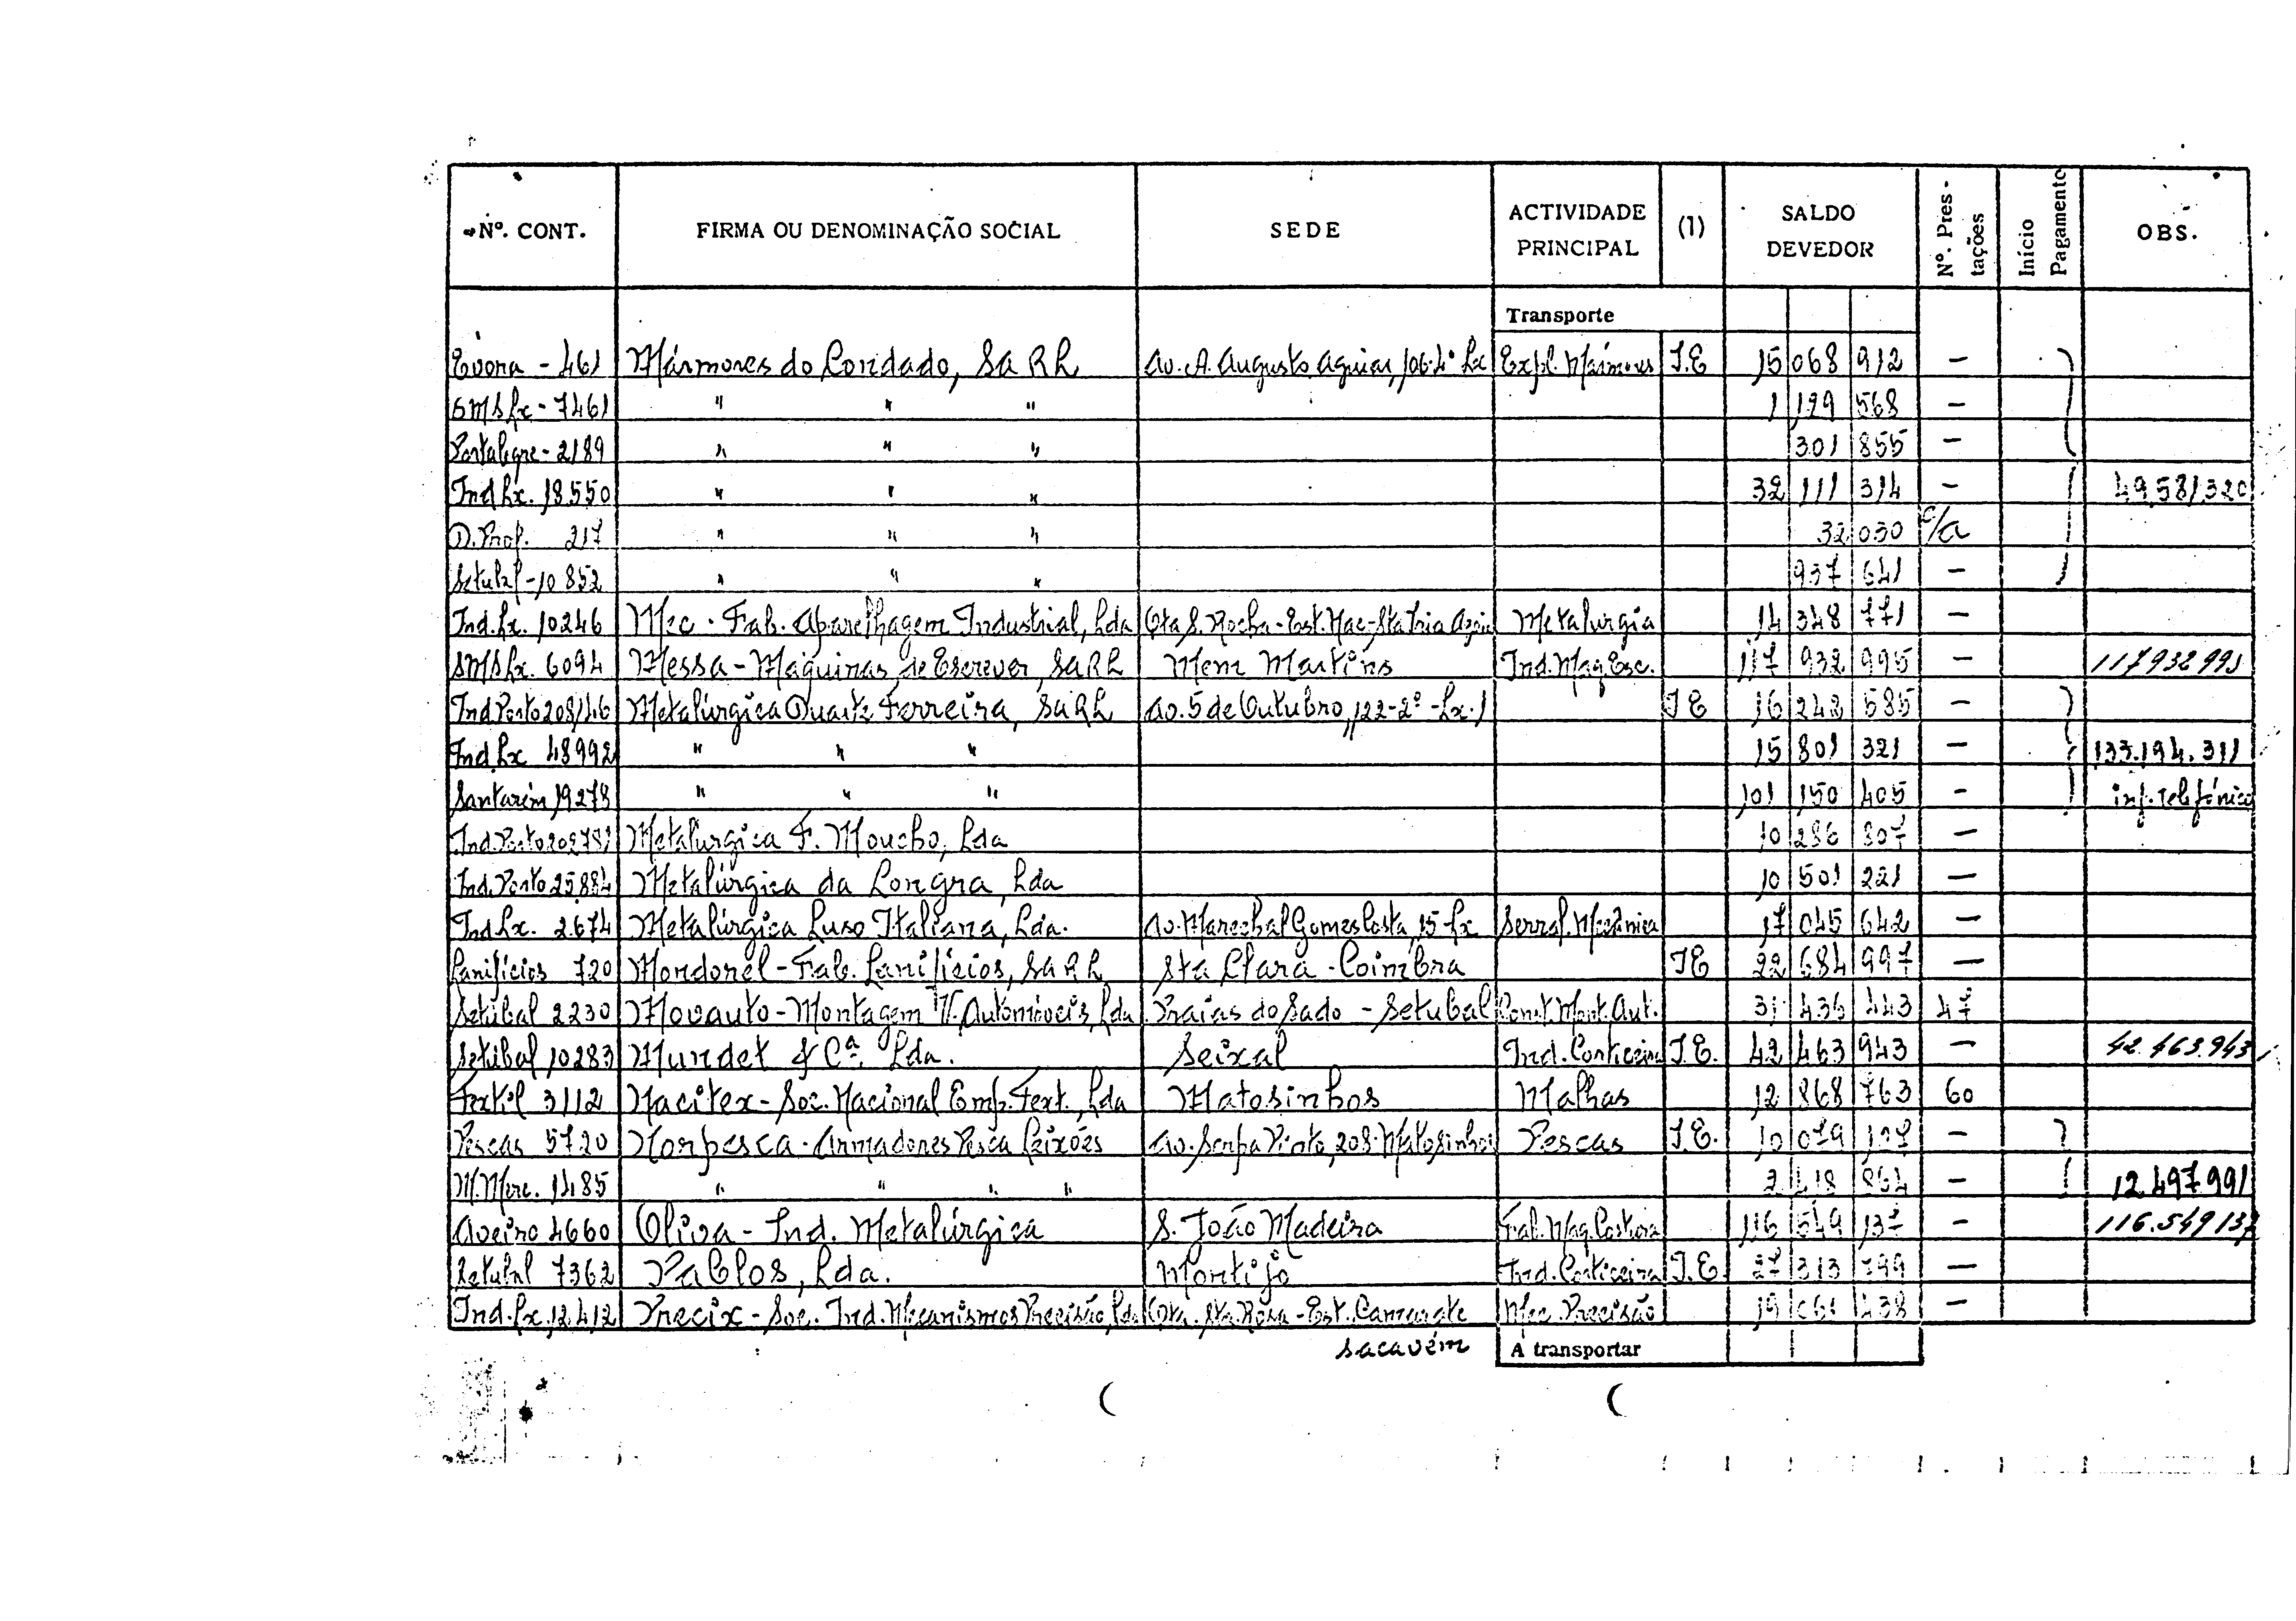 Nº. CONT. FIRMA OU DENOMINAÇÃO SOCIAL SEDE ACTIVIDADE PRINCIPAL (1) SALDO DEVEDOR Nº. Pres-tações Início Pagamento OBS.
Transporte
Évora - 461 Mármores do Condado, SARL Av. A. Augusto Aguiar, 106-4º Lx Expl. Mármores I.E 15 068 912 —
SMS Lx - 7461 " " " 1 129 568 —
Portalegre - 2189 " " " 301 855 —
Ind Lx. 18.550 " " " 32 111 314 — 49.581.320
D. Prof. 217 " " " 32 030 c/a
Setubal - 10 852 " " " 937 641 —
Ind. Lx. 10246 Mec - Fab. Aparelhagem Industrial, Lda Metalurgia 14 348 771 —
SMS Lx. 6094 Messa - Máquinas de Escrever, SARL Mem Martins Ind. Maq. Esc. 117 932 995 — 117 932 995
Ind Porto 208/46 Metalúrgica Duarte Ferreira, SARL Av. 5 de Outubro, 122-2º - Lx. 1 I E 16 242 585 —
Ind Lx 48992 " " " 15 801 321 — 133.194.311
Santarém 19278 " " " 101 150 405 — inf. telefónica
Ind. Porto 202781 Metalúrgica F. Moucho, Lda 10 286 807 —
Ind. Porto 25.884 Metalúrgica da Longra, Lda 10 501 221 —
Ind Lx. 2.674 Metalúrgica Luso Italiana, Lda. Av. Marechal Gomes Costa, 15 - Lx Serral. Mecânica 17 045 642 —
Lanifícios 720 Mondorel - Fab. Lanifícios, SARL Sta Clara - Coimbra I E 22 684 997 —
Setúbal 2230 Movauto - Montagem V. Automóveis, Lda Praias do Sado - Setubal Const. Mont. Aut. 31 436 443 47
Setúbal 10283 Mundet & Cª. Lda. Seixal Ind. Corticeira I.E. 42 463 943 — 42.463.943
Textil 3112 Nacitex - Soc. Nacional Emp. Text., Lda Matosinhos Malhas 12 868 763 60
Pescas 5720 Norpesca - Armadores Pesca Leixões Av. Serpa Pinto, 208 - Matosinhos Pescas I.E. 10 079 127 —
M. Merc. 1485 " " " " 2 418 864 — 12.497.991
Aveiro 4660 Oliva - Ind. Metalúrgica S. João Madeira Fab. Maq. Costura 116 549 137 — 116.549.137
Setubal 7362 Pablos, Lda. Montijo Ind. Corticeira I.E. 27 313 799 —
Ind. Lx, 12412 Precix - Soc. Ind. Mecanismos Precisão, Lda Qta. Sta. Rosa - Est. Camarate Mec. Precisão 19 061 438 —
Sacavém A transportar